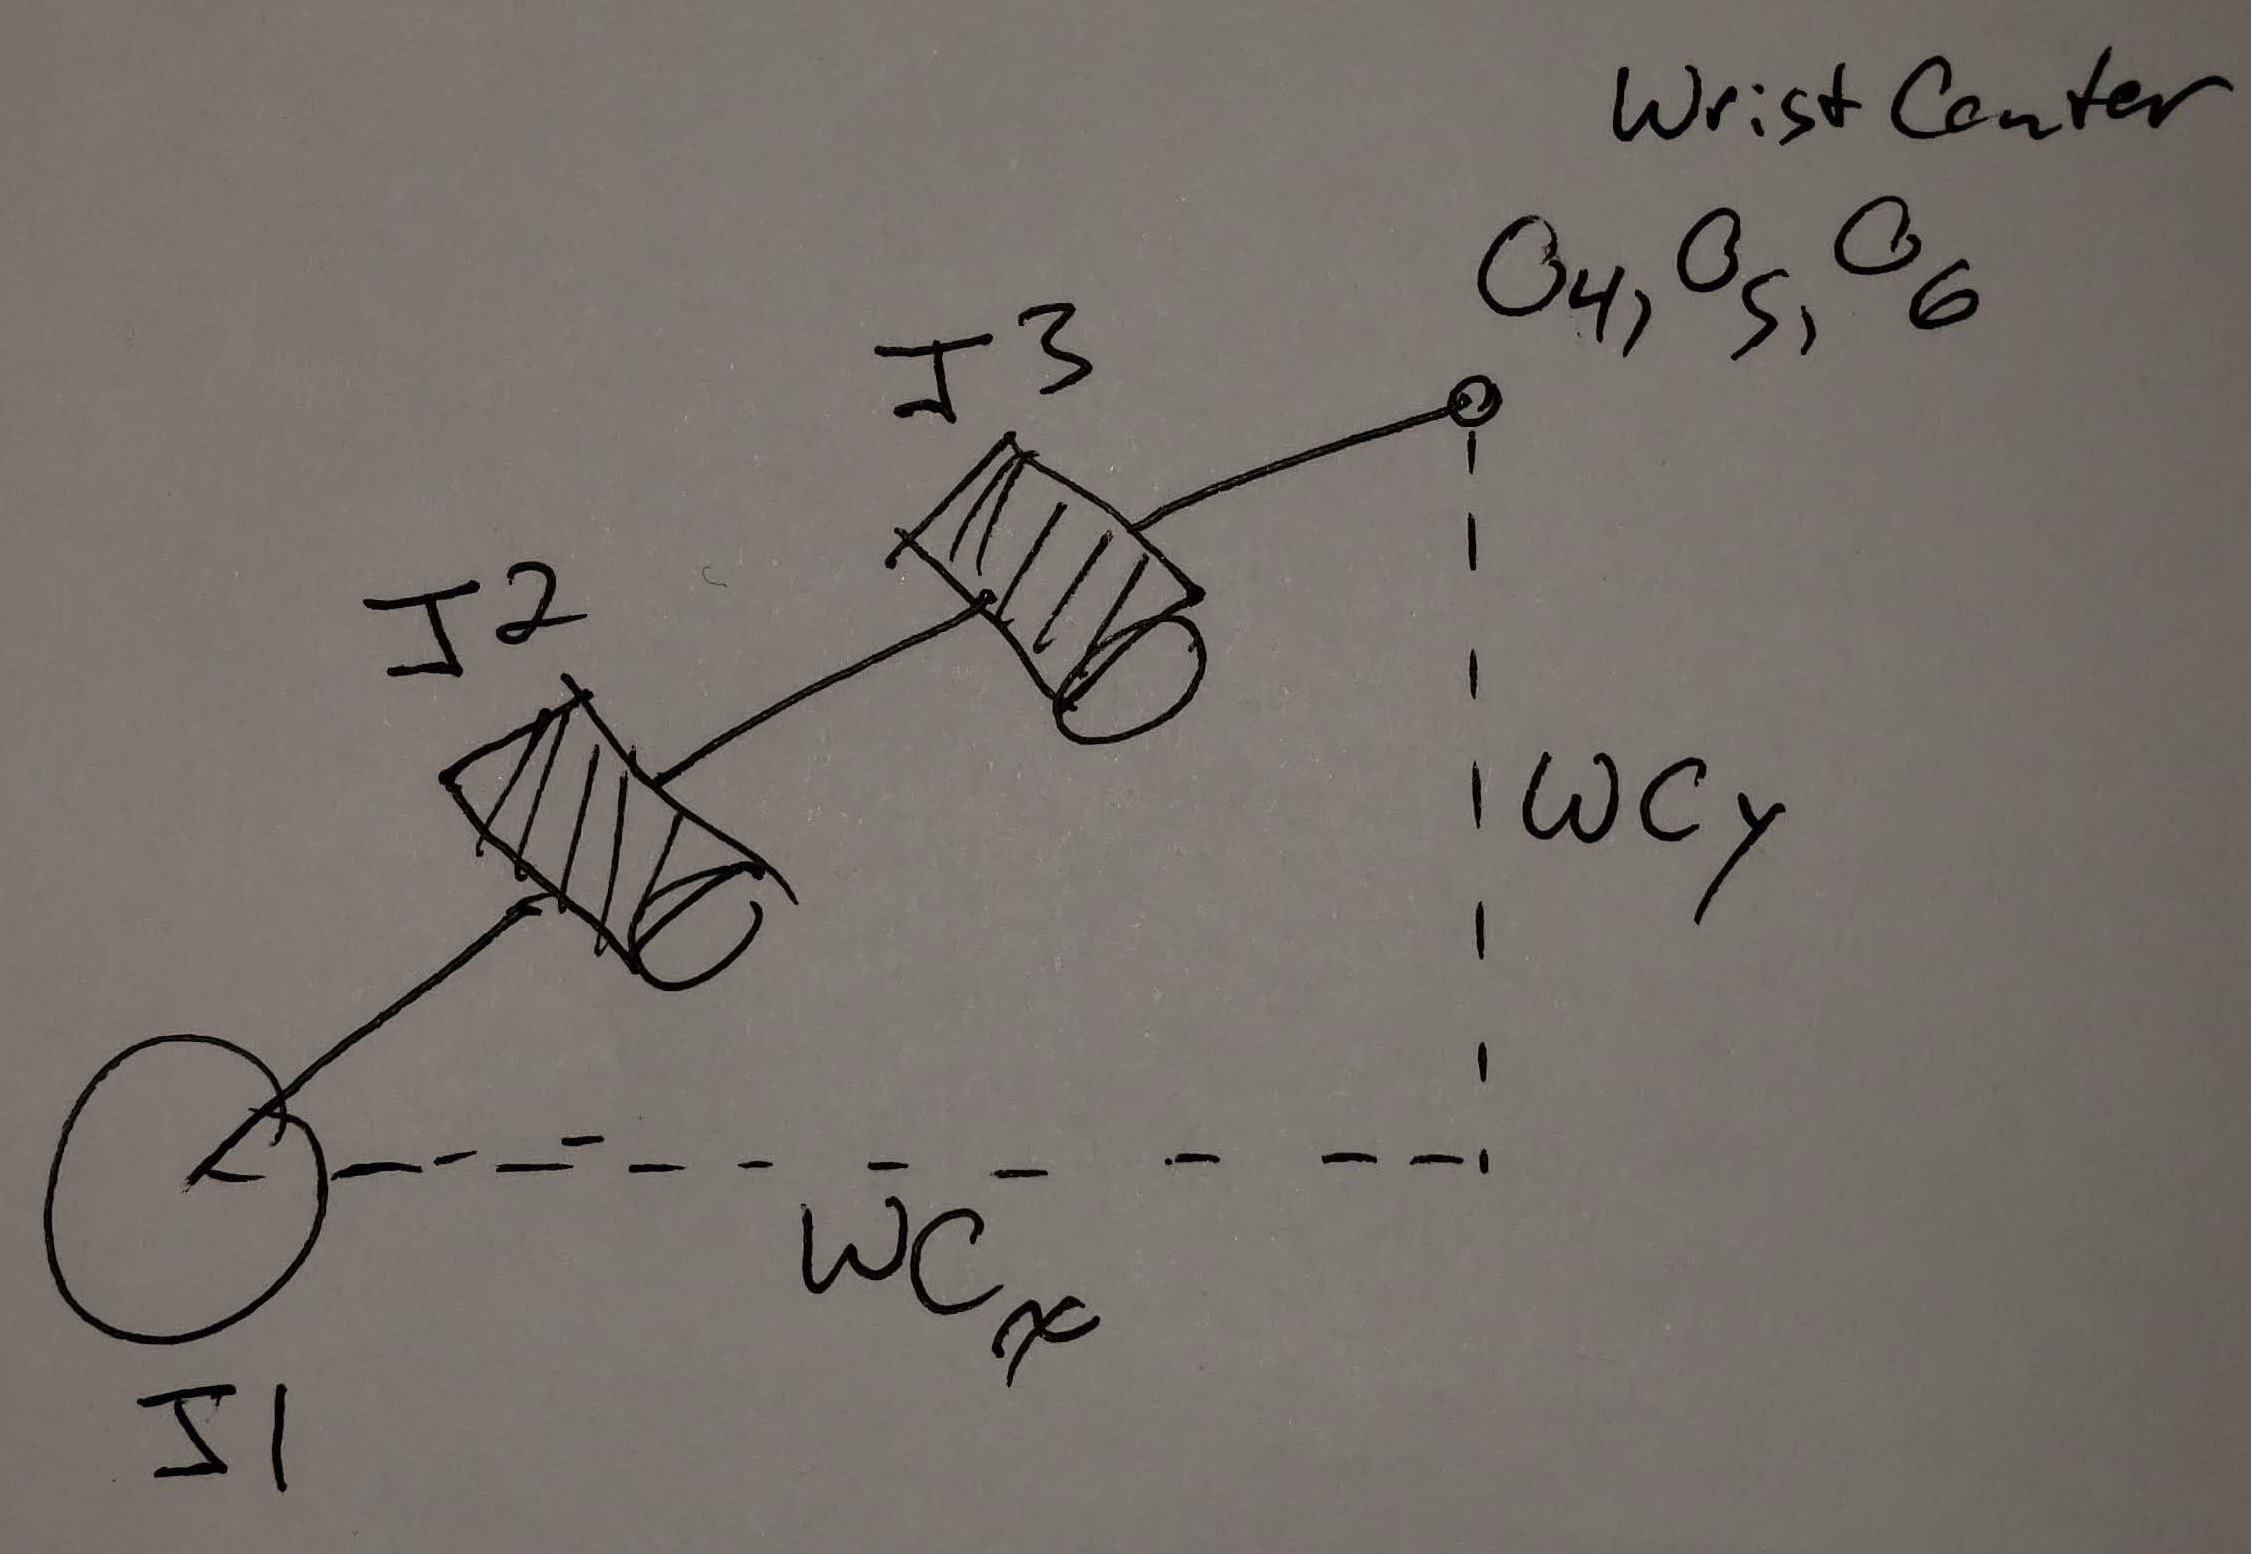 Wrist Center
O4, O5, O6
J3
J2
WCy
WCx
J1